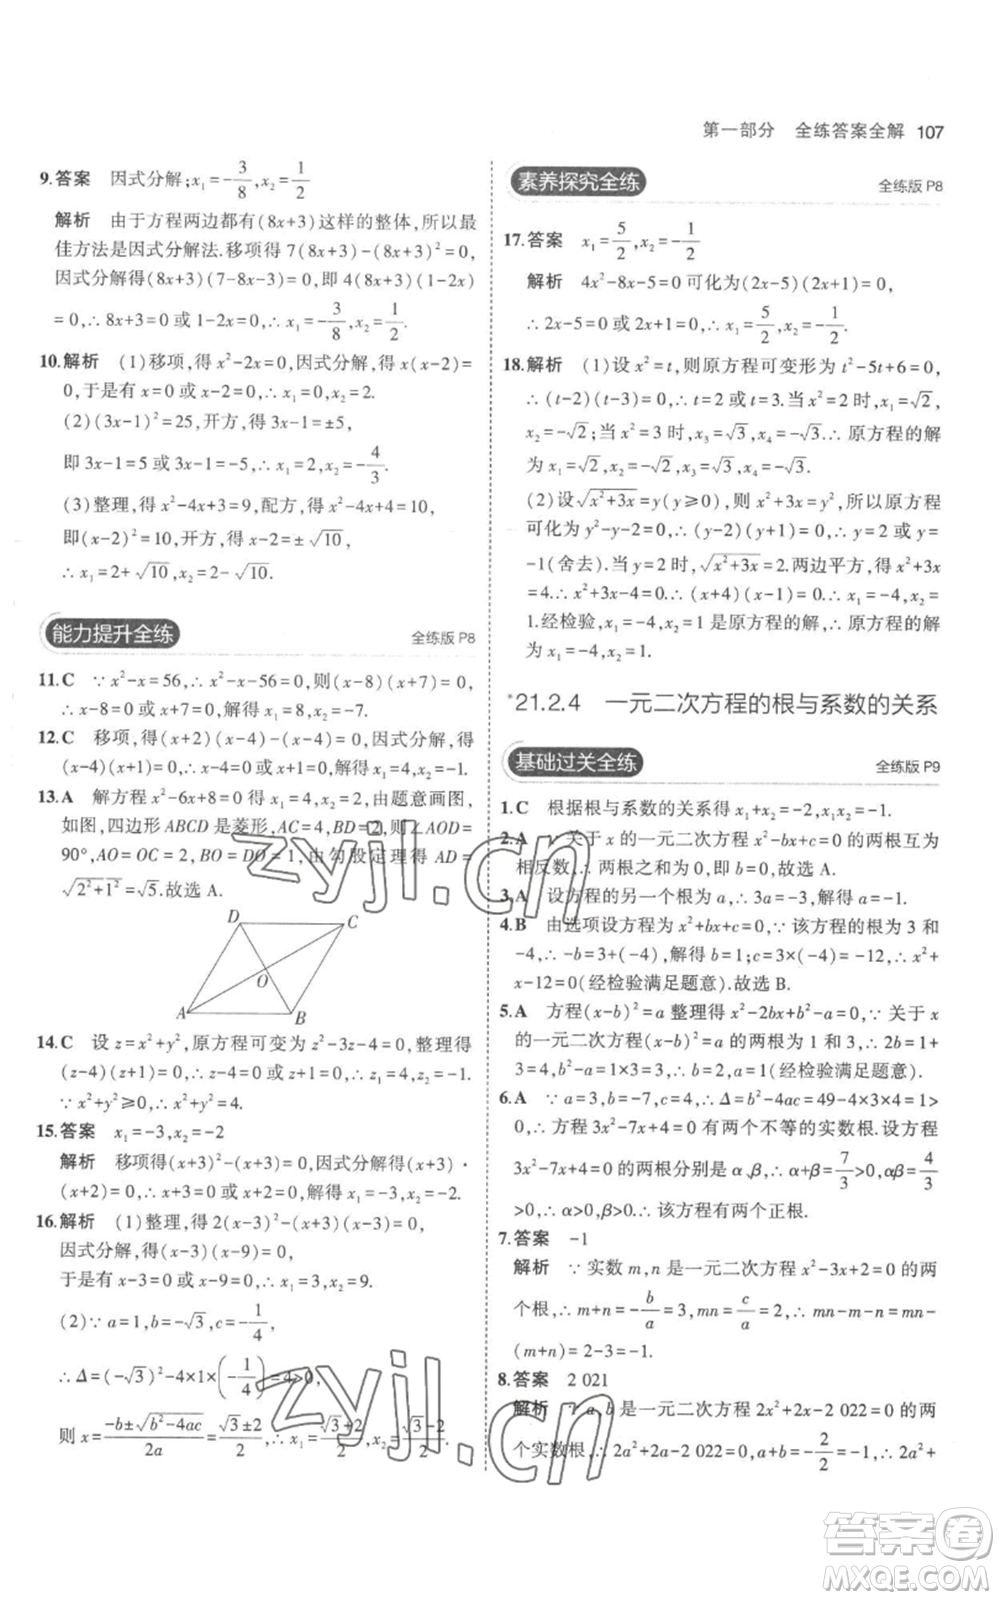 第一部分 全练答案全解 107
9.答案 因式分解;x₁=-3/8,x₂=1/2
解析 由于方程两边都有(8x+3)这样的整体,所以最
佳方法是因式分解法.移项得 7(8x+3)-(8x+3)²=0,
因式分解得(8x+3)(7-8x-3)=0,即 4(8x+3)(1-2x)
=0,∴ 8x+3=0 或 1-2x=0,∴ x₁=-3/8,x₂=1/2.
10.解析 (1)移项,得 x²-2x=0,因式分解,得 x(x-2)=
0,于是有 x=0 或 x-2=0,∴ x₁=0,x₂=2.
(2)(3x-1)²=25,开方,得 3x-1=±5,
即 3x-1=5 或 3x-1=-5,∴ x₁=2,x₂=-4/3.
(3)整理,得 x²-4x+3=9,配方,得 x²-4x+4=10,
即(x-2)²=10,开方,得 x-2=±√10,
∴ x₁=2+√10,x₂=2-√10.
能力提升全练 全练版 P8
11.C ∵ x²-x=56,∴ x²-x-56=0,则(x-8)(x+7)=0,
∴ x-8=0 或 x+7=0,解得 x₁=8,x₂=-7.
12.C 移项,得(x+2)(x-4)-(x-4)=0,因式分解,得
(x-4)(x+1)=0,∴ x-4=0 或 x+1=0,∴ x₁=4,x₂=-1.
13.A 解方程 x²-6x+8=0,得 x₁=4,x₂=2,由题意画图,
如图,四边形 ABCD 是菱形,AC=4,BD=2,则∠AOD=
90°,AO=OC=2,BO=DO=1,由勾股定理得 AD=
√2²+1²=√5.故选 A.
D
C
O
A
B
14.C 设 z=x²+y²,原方程可变为 z²-3z-4=0,整理得
(z-4)(z+1)=0,∴ z-4=0 或 z+1=0,∴ z₁=4,z₂=-1.
∵ x²+y²≥0,∴ x²+y²=4.
15.答案 x₁=-3,x₂=-2
解析 移项得(x+3)²-(x+3)=0,因式分解得(x+3)·
(x+2)=0,∴ x+3=0 或 x+2=0,∴ x₁=-3,x₂=-2.
16.解析 (1)整理,得 2(x-3)²-(x+3)(x-3)=0,
因式分解,得(x-3)(x-9)=0,
于是有 x-3=0 或 x-9=0,∴ x₁=3,x₂=9.
(2)∵ a=1,b=-√3,c=-1/4,
∴ Δ=(-√3)²-4×1×(-1/4)=4>0,
则 x=-b±√b²-4ac/2a=√3±2/2,∴ x₁=√3+2/2,x₂=√3-2/2.
素养探究全练 全练版 P8
17.答案 x₁=5/2,x₂=-1/2
解析 4x²-8x-5=0 可化为(2x-5)(2x+1)=0,
∴ 2x-5=0 或 2x+1=0,∴ x₁=5/2,x₂=-1/2.
18.解析 (1)设 x²=t,则原方程可变形为 t²-5t+6=0,
∴ (t-2)(t-3)=0,∴ t=2 或 t=3.当 x²=2 时,x₁=√2,
x₂=-√2;当 x²=3 时,x₃=√3,x₄=-√3.∴ 原方程的解
为 x₁=√2,x₂=-√2,x₃=√3,x₄=-√3.
(2)设√x²+3x=y(y≥0),则 x²+3x=y²,所以原方程
可化为 y²-y-2=0,∴ (y-2)(y+1)=0,∴ y=2 或 y=
-1(舍去).当 y=2 时,√x²+3x=2.两边平方,得 x²+
3x=4,即 x²+3x-4=0,∴ (x+4)(x-1)=0,∴ x₁=-4,x₂=
1.经检验,x₁=-4,x₂=1 是原方程的解,∴ 原方程的解
为 x₁=-4,x₂=1.
*21.2.4 一元二次方程的根与系数的关系
基础过关全练 全练版 P9
1.C 根据根与系数的关系得 x₁+x₂=-2,x₁x₂=-1.
2.A ∵ 关于 x 的一元二次方程 x²-bx+c=0 的两根互为
相反数,∴ 两根之和为 0,即 b=0.故选 A.
3.A 设方程的另一个根为 a,∴ 3a=-3,解得 a=-1.
4.B 由选项设方程为 x²+bx+c=0,∵ 该方程的根为 3 和
-4,∴ -b=3+(-4),解得 b=1;c=3×(-4)=-12,∴ x²+
x-12=0(经检验满足题意).故选 B.
5.A 方程(x-b)²=a 整理得 x²-2bx+b²-a=0,∵ 关于 x
的一元二次方程(x-b)²=a 的两根为 1 和 3,∴ 2b=1+
3,b²-a=1×3,∴ b=2,a=1(经检验满足题意).
6.A ∵ a=3,b=-7,c=4,∴ Δ=b²-4ac=49-4×3×4=1>
0,∴ 方程 3x²-7x+4=0 有两个不等的实数根.设方程
3x²-7x+4=0 的两根分别是 α、β,∴ α+β=7/3>0,αβ=4/3
>0,∴ α>0,β>0.∴ 该方程有两个正根.
7.答案 -1
解析 ∵ 实数 m,n 是一元二次方程 x²-3x+2=0 的两
个根,∴ m+n=-b/a=3,mn=c/a=2,∴ mn-m-n=mn-
(m+n)=2-3=-1.
8.答案 2 021
解析 ∵ a,b 是一元二次方程 2x²+2x-2 022=0 的两
个实数根,∴ 2a²+2a-2 022=0,a+b=-2/2=-1,∴ 2a²+
zyjl.cn
zyjl.cn
答案卷
MXQE.COM